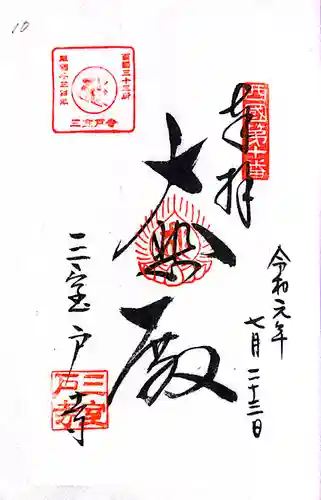 10
西国三十三所
草創千三百年
三室戸寺
西国第十番
奉拝
大悲殿
三室戸寺
三室戸寺
令和元年
七月二十三日